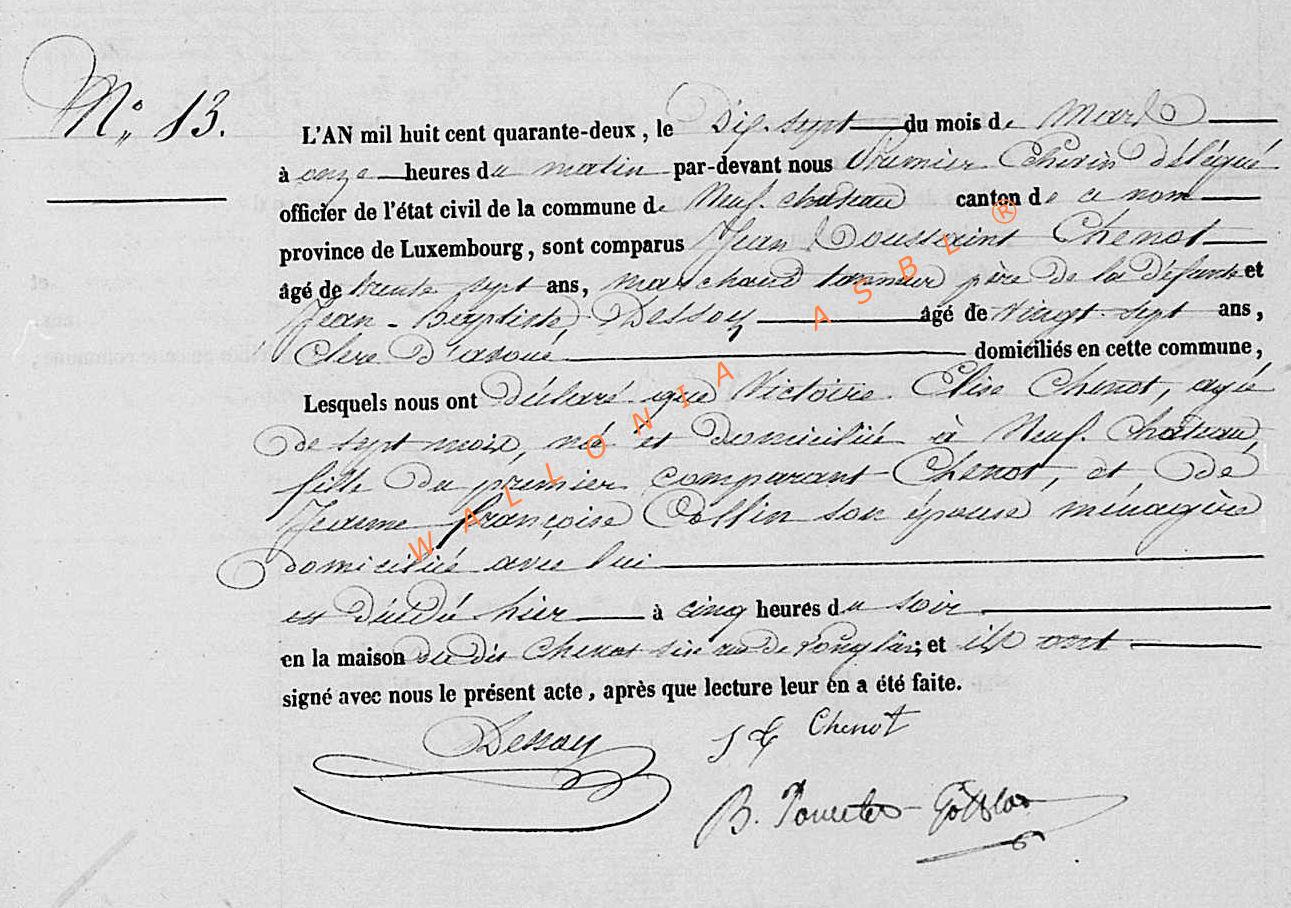 N° 13.
L'AN mil huit cent quarante-deux, le Dix-sept du mois de Mars
à onze heures du matin par-devant nous Premier Echevin délégué
officier de l'état civil de la commune de Neufchateau canton de ce nom
province de Luxembourg, sont comparus Jean Toussaint Chenot
âgé de trente sept ans, marchand tanneur père de la défunte et
Jean-Baptiste Dessoy âgé de Vingt-sept ans,
Clerc d'avoué domiciliés en cette commune,
Lesquels nous ont déclaré que Victoire Elise Chenot, agée
de sept mois, née et domiciliée à Neufchateau,
fille du premier comparant Chenot, et de
Jeanne françoise Collin son épouse ménagère
domiciliée avec lui
est décédé hier à cinq heures du soir
en la maison du dit Chenot sise rue de ; et ils ont
signé avec nous le présent acte, après que lecture leur en a été faite.
Dessoy
J T Chenot
B.
WALLONIA ASBL ®